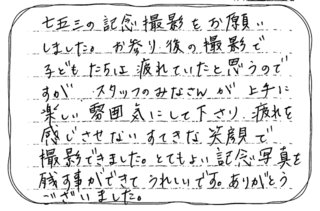 七五三の記念撮影をお願い
しました。お参り後の撮影で
子どもたちは疲れていたと思うので
すが スタッフのみなさんが 上手に
楽しい雰囲気にして下さり 疲れを
感じさせない すてきな笑顔で
撮影できました。とてもよい記念写真を
残す事ができて うれしいです。ありがとう
ございました。